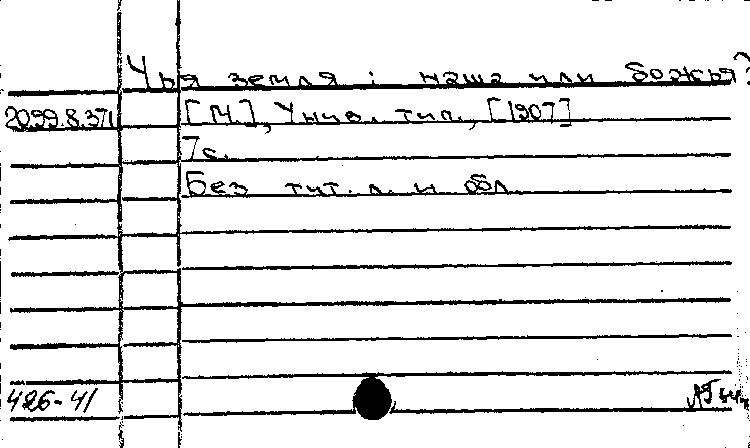 Чья земля: наша или божья?
2099.8.371 [М], Унив. тип., [1907]
7с.
Без тит. л. и обл.
426-41